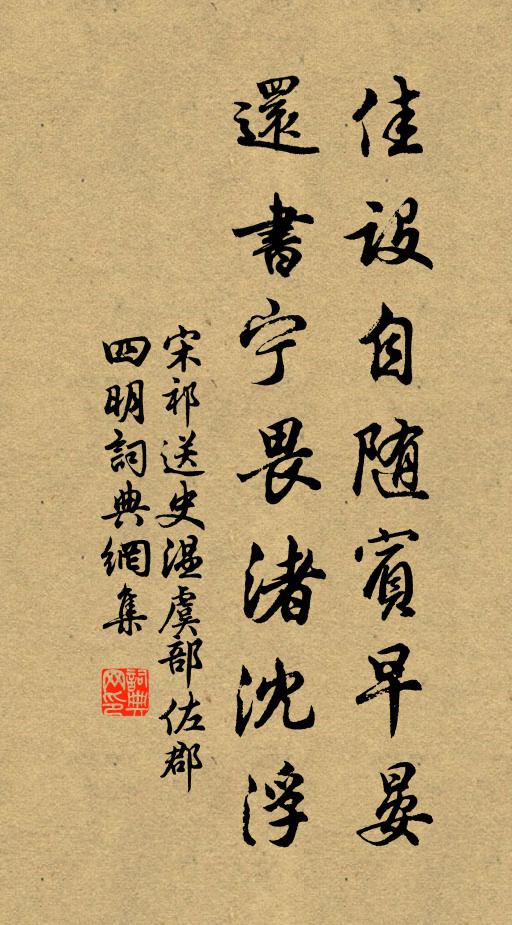 佳設自随賓早晏
還書宁畏渚沈浮
宋祁送史温虞部佐郡
四明詞典網集
詞典网印